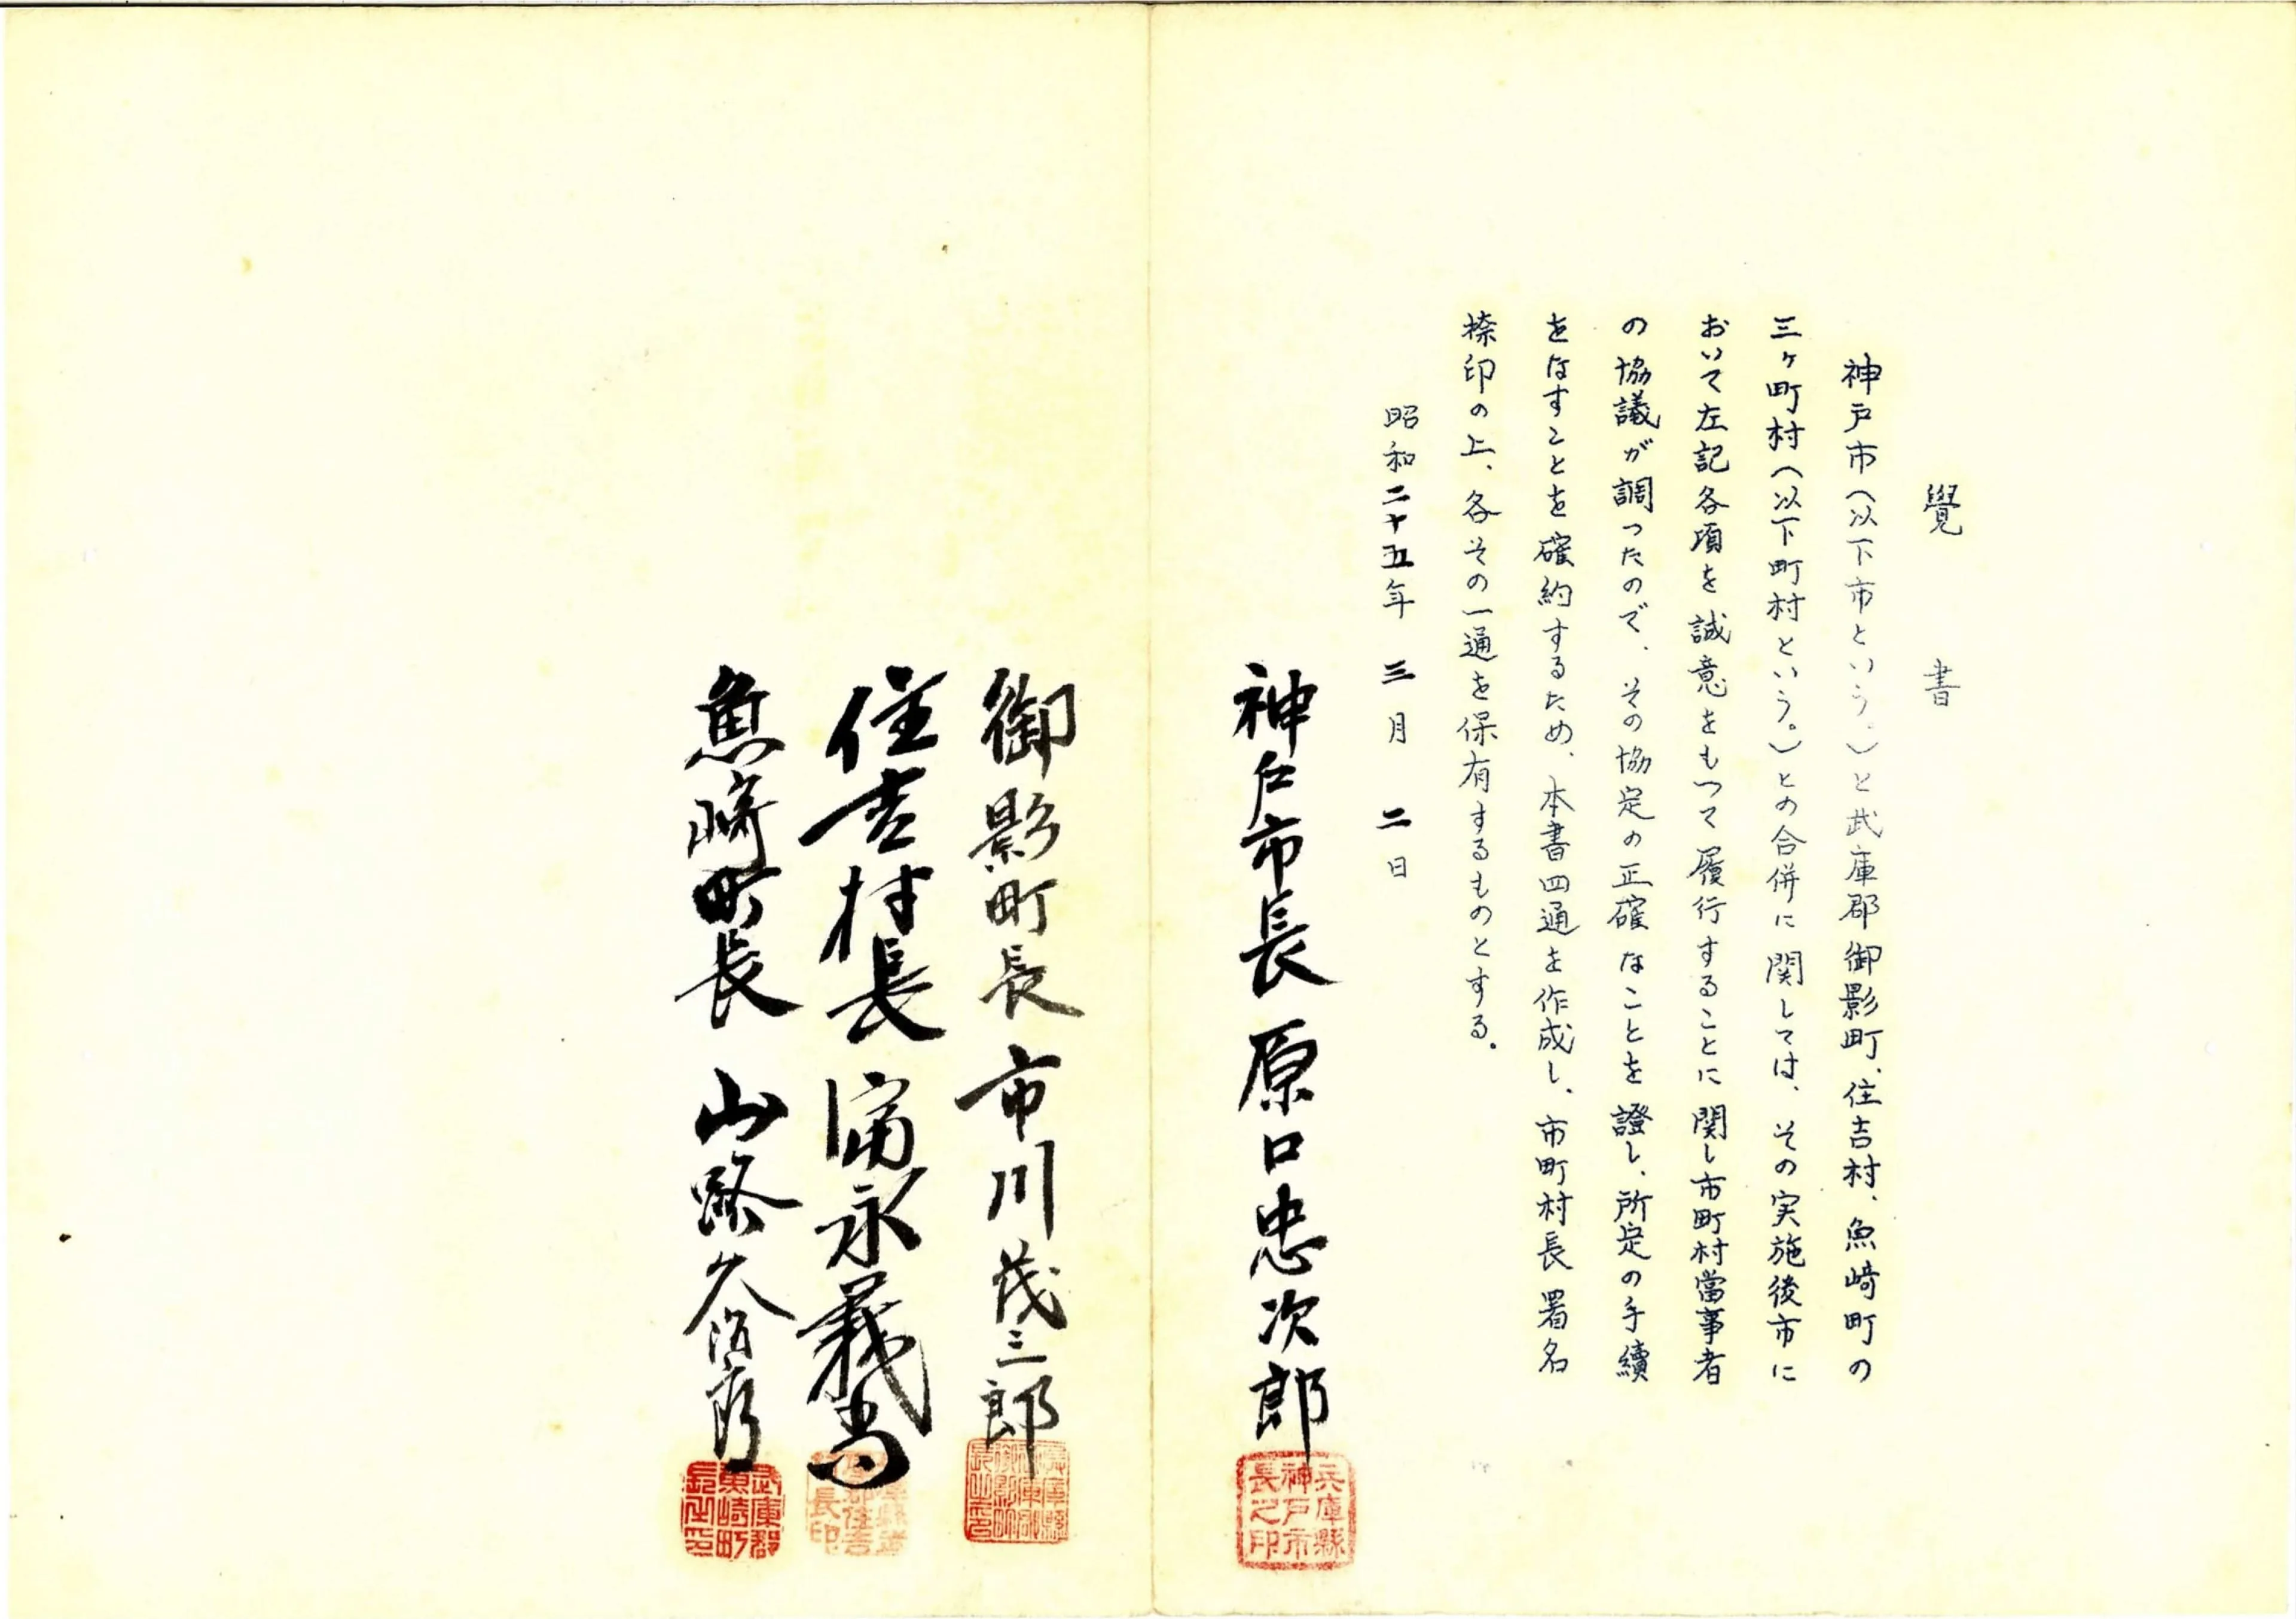 覺書
神戸市（以下市という。）と武庫郡御影町、住吉村、魚崎町の
三ヶ町村（以下町村という。）との合併に関しては、その実施後市に
おいて左記各項を誠意をもつて履行することに関し市町村當事者
の協議が調つたので、その協定の正確なことを證し、所定の手續
をなすことを確約するため、本書四通を作成し、市町村長署名
捺印の上、各その一通を保有するものとする。
昭和二十五年三月二日
神戸市長 原口忠次郎
兵庫縣
神戸市
長之印
御影町長 市川茂三郎
住吉村長 濱永義尚
魚崎町長 山路久治郎
武庫郡
魚崎町
長之印